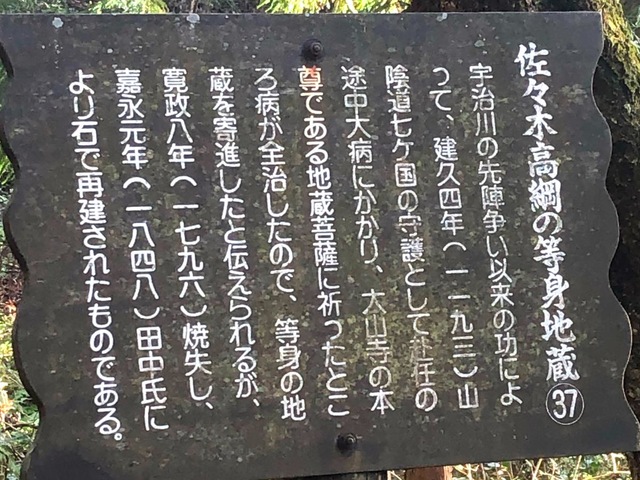 佐々木高綱の等身地蔵㊲
宇治川の先陣争い以来の功によ
って、建久四年(一一九三)山
陰道七ケ国の守護として赴任の
途中大病にかかり、大山寺の本
尊である地蔵菩薩に祈ったとこ
ろ病が全治したので、等身の地
蔵を寄進したと伝えられるが、
寛政八年(一七九六)焼失し、
嘉永元年(一八四八)田中氏に
より石で再建されたものである。